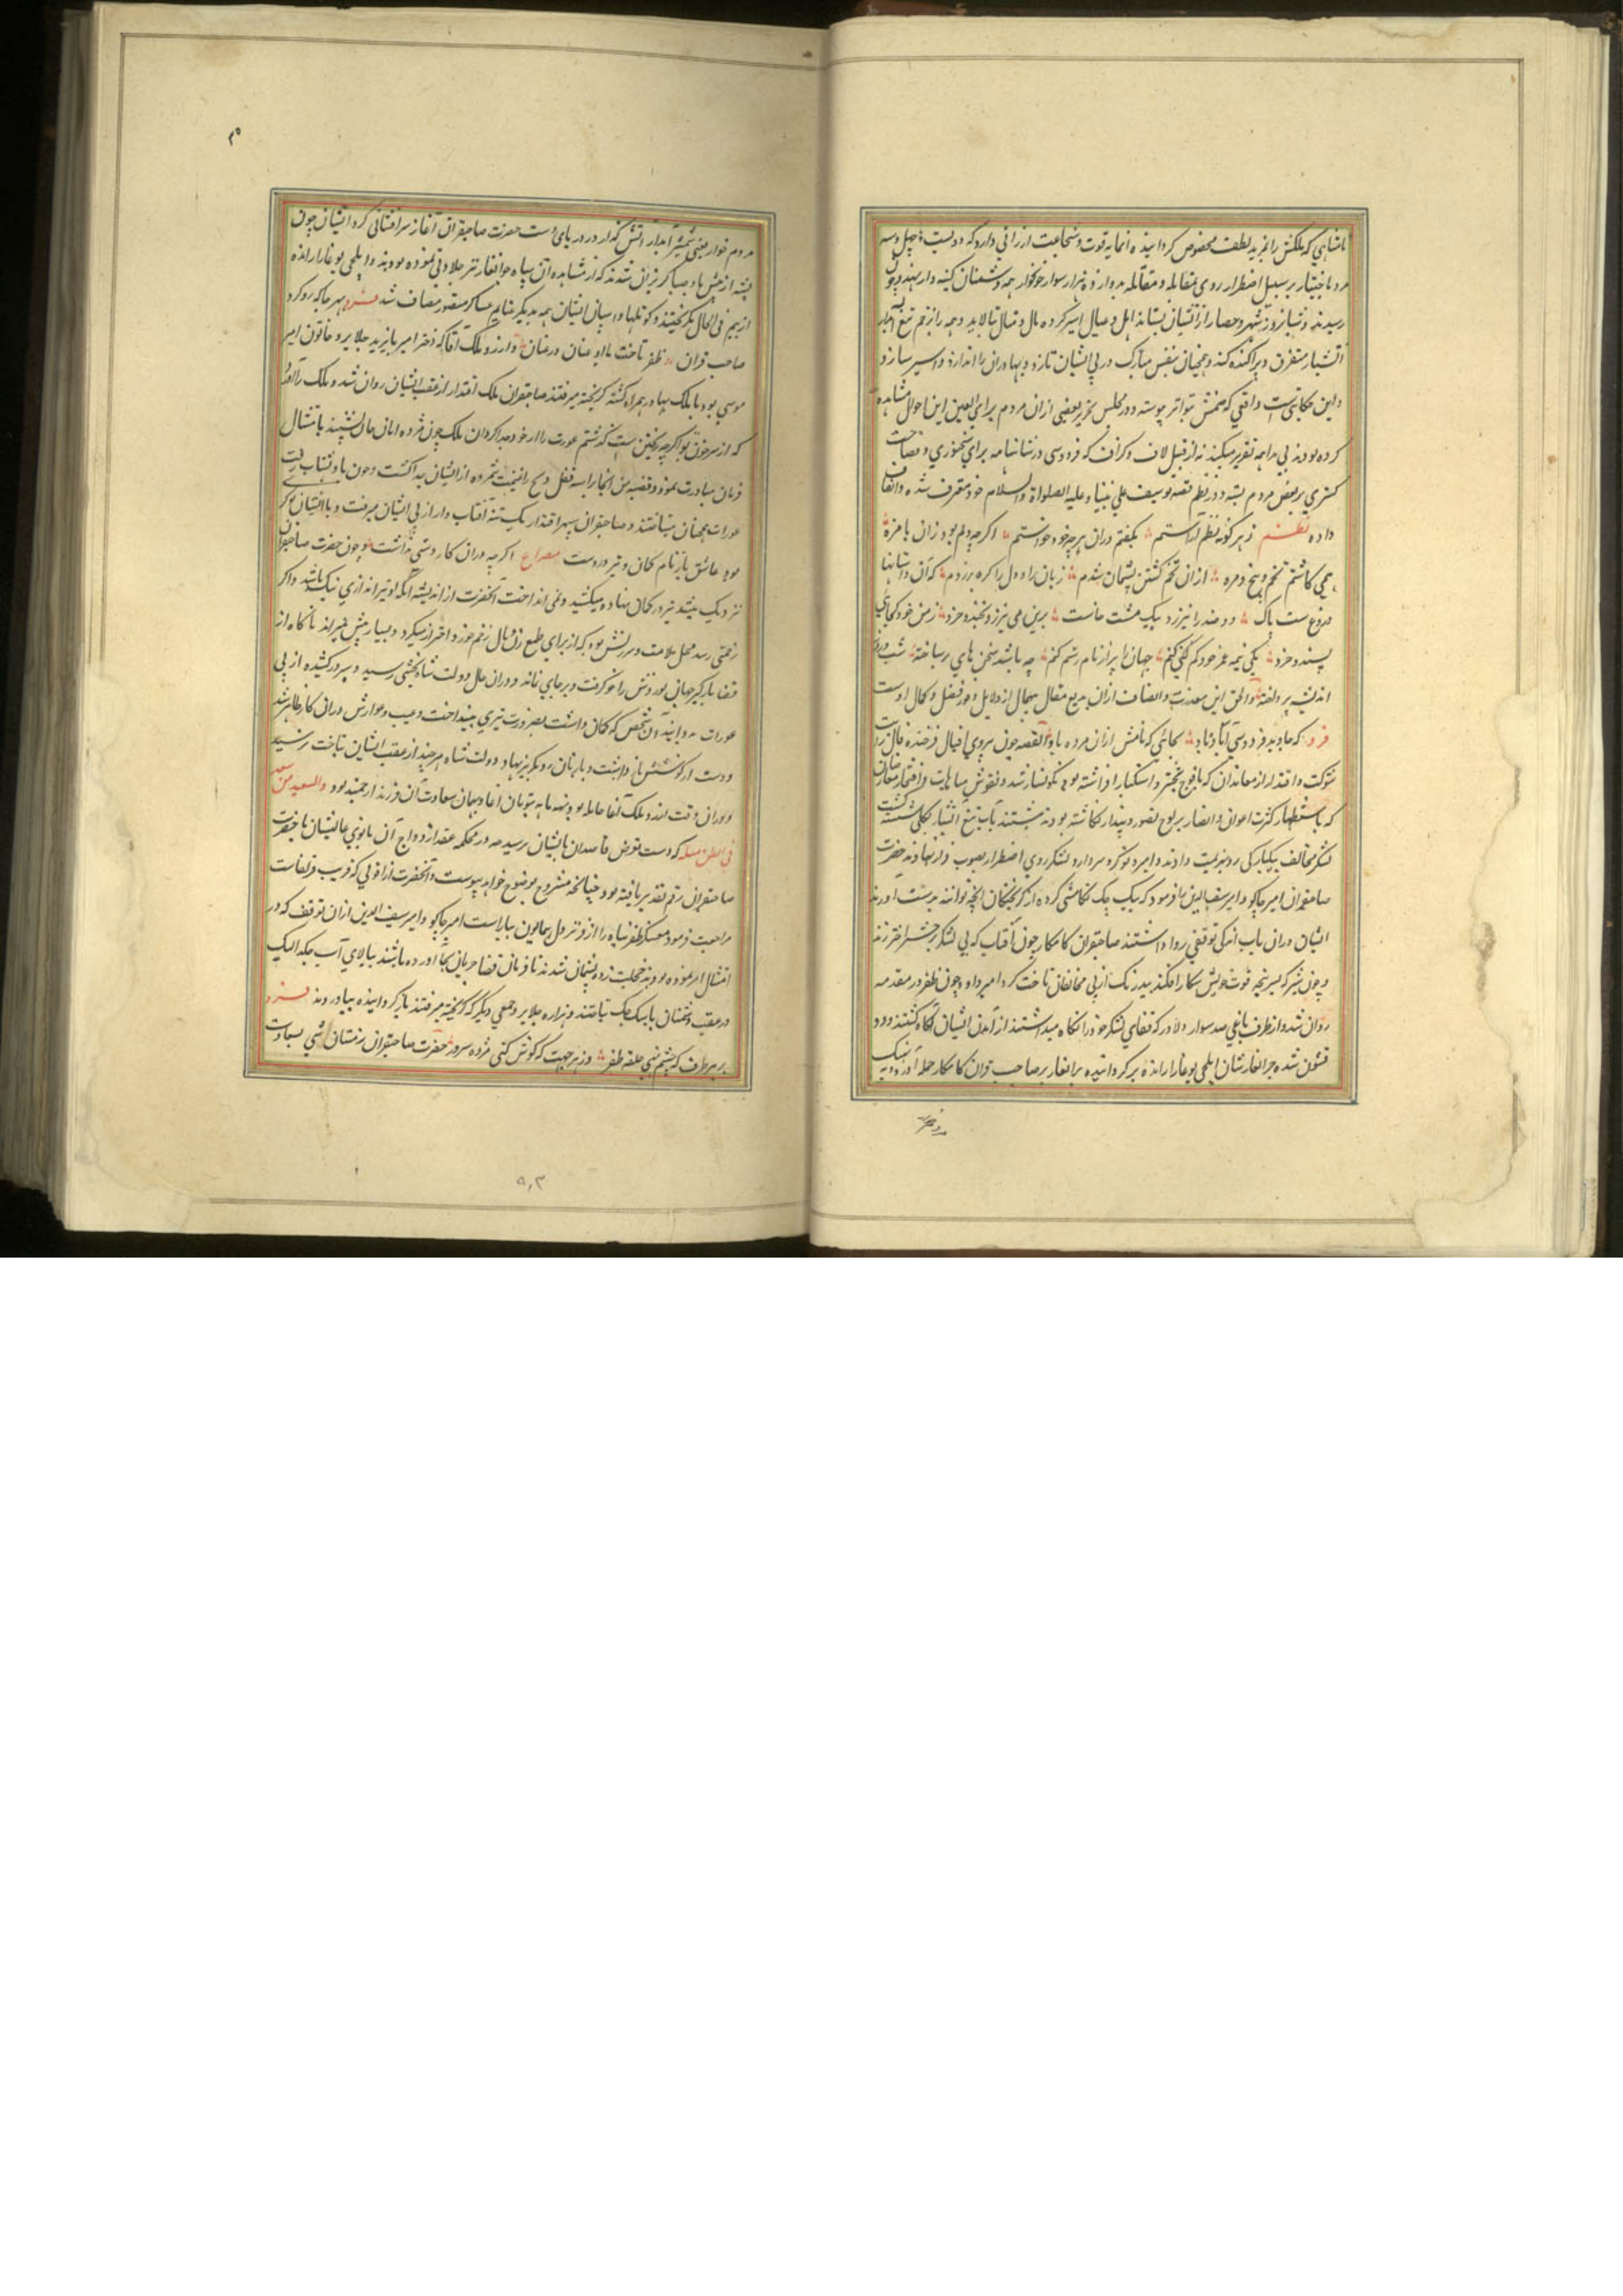 پادشاهی که ملکش را بمزید لطف مخصوص گردانیده انمایه قوت و شجاعت ارزانی دارد که دویست و چهل و سه
مرد با ختیار بر سبیل اضطرار روی بمقابله و مقاتله دوازده هزار سوار خونخوار همه دشمنان کینه دار نهند و چون
رسیدند و شبانروز شهر و حصار از ایشان بستاند اهل و عیال اسیر کرده مال و منال بتالابد و همه را زخم تیغ آبدار
آتشبار متفرق و پراکنده کند و همچنان بنفس مبارک در پی ایشان تازد و بهادران را اندازد و اسیر سازد
و این حکایتی است واقعی که ضمنش بتواتر پیوسته و در مجلس تحریر بعضی ازان مردم برای العین این احوال مشاهده
کرده بودند بی مداهنه تقریر میکنند نه از قبیل لاف و گزاف که فردوسی در شاهنامه برای سخنوری و فصاحت
گستری بر بعضی مردم بسته و در نظم قصه یوسف علی نبینا و علیه الصلواة والسلام خود معترف شده و انصاف
داده نظم ز هر گونه نظم آراستم بگفتم دران هر چه خود خواستم اگر چه دلم بود زان با مزه
همی کاشتم تخم و بیخ و بزه ازان تخم کشتن پشیمان شدم زبان را و دل را گره برزدم که آن داستانها
دروغ ست پاک دو صد زان نیرزد بیک مشت خاک برین می نیرزد بخندد خرد ز من خود کجا کی
پسندد خرد یکی نیمه عمر خود کم کنم جهان را پر از نام رستم کنم چه باشد سخن های بر ساخته شب و روز
اندیشه پرداخته و الحق این معذرت و انصاف ازان بدیع مقال بیحال از دلایل وفور فضل و کمال اوست
فرد که جاوید فردوسی آباد باد بجائی که نامش ازان مرده باد القصه چون پرتوی اقبال فرخنده فال رایت
شوکت و اقتدار از معاندان که باوج تجبر و استکبار افراشته بود نگونسار شد و نقوش مباهات و افتخار مخالفان
که باستظهار کثرت اعوان و انصار بر لوح تصور و پندار نگاشته بودند بآب تیغ آتشبار بکلی شسته گشت
لشکر مخالف بیکبارگی رو بهزیمت دادند و امیر و نوکر و سردار و لشکر روی اضطرار بصوب فرار نهادند حضرت
صاحبقران امیر جاکو و امیر سیف الدین را فرمود که بیک چک تکامشی کرده از گریختگان آنچه توانند بدست اورند
ایشان دران باب اندکی توقفی روا داشتند صاحبقران کامکار چون آفتاب که بی لشکر بر حشر اختر زند
و چون شیر که بسر پنجه قوت خویش شکار افکند بیدرنگ از پی مخالفان تاخت کرد امیر داود چون ظفر در مقدمه
روان شد و ازطرف یاغی صد سوار دلاور که قفای لشکر خود را نگاه میداشتند از آمدن ایشان آگاه گشتند و دو
قشون شده جرانغارشان ایلچی بوغا را رانده برگردانیده برانغار بر صاحب قران کامکار حمله آورد و بیک
و خبر

۲۰
مردم خوار یعنی شمشیر آبدار آتش گذار در دریای دست حضرت صاحبقران آغاز سرافشانی کرد ایشان چون
پشه از پیش باد صبا گریزان شدند که از مشاهده آن سپاه جوانغار نیز جلادتی نموده بودند و ایلچی بوغا را رانده
از بیم فی الحال بگریختند و کوتلها و اسپان ایشان همه بدیگر غنایم عساکر منصور مضاف شد فرد بهر جا که رو کرد
صاحب قران ظفر تاخت با او عنان در عنان و ارزو ملک آقا که دختر امیر بایزید جلایر و خاتون امیر
موسی بود با ملک بهادر همراه گشته گریخته میرفتند صاحبقران ملک اقتدار از عقب ایشان روان شد و ملک را آواز
که از سر خون تو اگر چه ریختنی است گذشتم عورت را از خود جدا گردان ملک چون مژده امان جان شنید بامتثال
فرمان مبادرت نمود و قضیه من نجا براسه فقد ربح را غنیمت شمرده از ایشان جدا گشت و چون باد بشتاب رفت
عورات همچنان میتاختند و صاحبقران سپهر اقتدار یک تنه آفتاب وار از پی ایشان میرفت و با ایشان نوکر
بود عاشق بایزنام کمان و تیر در دست مصراع اگر چه دران کار دستی نداشت و چون حضرت صاحبقران
نزدیک میشد تیر در کمان نهاده میکشید و نمی انداخت آنحضرت از اندیشه انکه او تیرانداز نیک باشد و اگر
زخمی رسد محل ملامت و سرزنش بود که از برای طمع زن و مال زخم خورد احتراز میکرد و بسیار پیش نمیراند تا گاه از
قضا بارگیر جهان نوردش را خو گرفت و بر جای بماند و دران حال دولت شاه بخشی رسید و سپر در کشیده از پی
عورات دوانید آن شخص که کمان داشت بضرورت تیری بینداخت و عیب و عوارش دران کار ظاهر شد
دست از کوشش باز داشت و بازنان رو بگریز نهاد و دولت شاه هر چند از عقب ایشان بتاخت نرسید
و دران وقت ارزو ملک آغا حامله بود بنه ماهه بتومان آغا و بیمن سعادت آن فرزند ارجمند بود والسعید من سعد
فی بطن امه که دست تعرض قاصدان بایشان نرسید چه در محکمه عقد ازدواج آن بانوی عالیشان با حضرت
صاحبقران رقم تقدیر یافته بود چنانچه مشروح بوضوح خواهد پیوست و آنحضرت از قولی که قریب قراغاست
مراجعت فرمود معسکر ظفر پناه را از فر نزول همایون بیاراست امیر جاکو و امیر سیف الدین ازان توقف که در
امتثال امر نموده بودند خجلت زده و پشیمان شدند تا فرمان قضا جریان بجا اورده باشند ببالای آب جکدالیک
در عقب دشمنان بایبیک چک بتاختند و هزاره جلایر و جمعی دیگر که گریخته میرفتند باز گردانیده بیاوردند فرد
بر هر طرف که چشم نهی جلوه ظفر وز هر جهت که گوش کنی مژده سرور حضرت صاحبقران زمستان آنجای بسعادت
۸۰۳